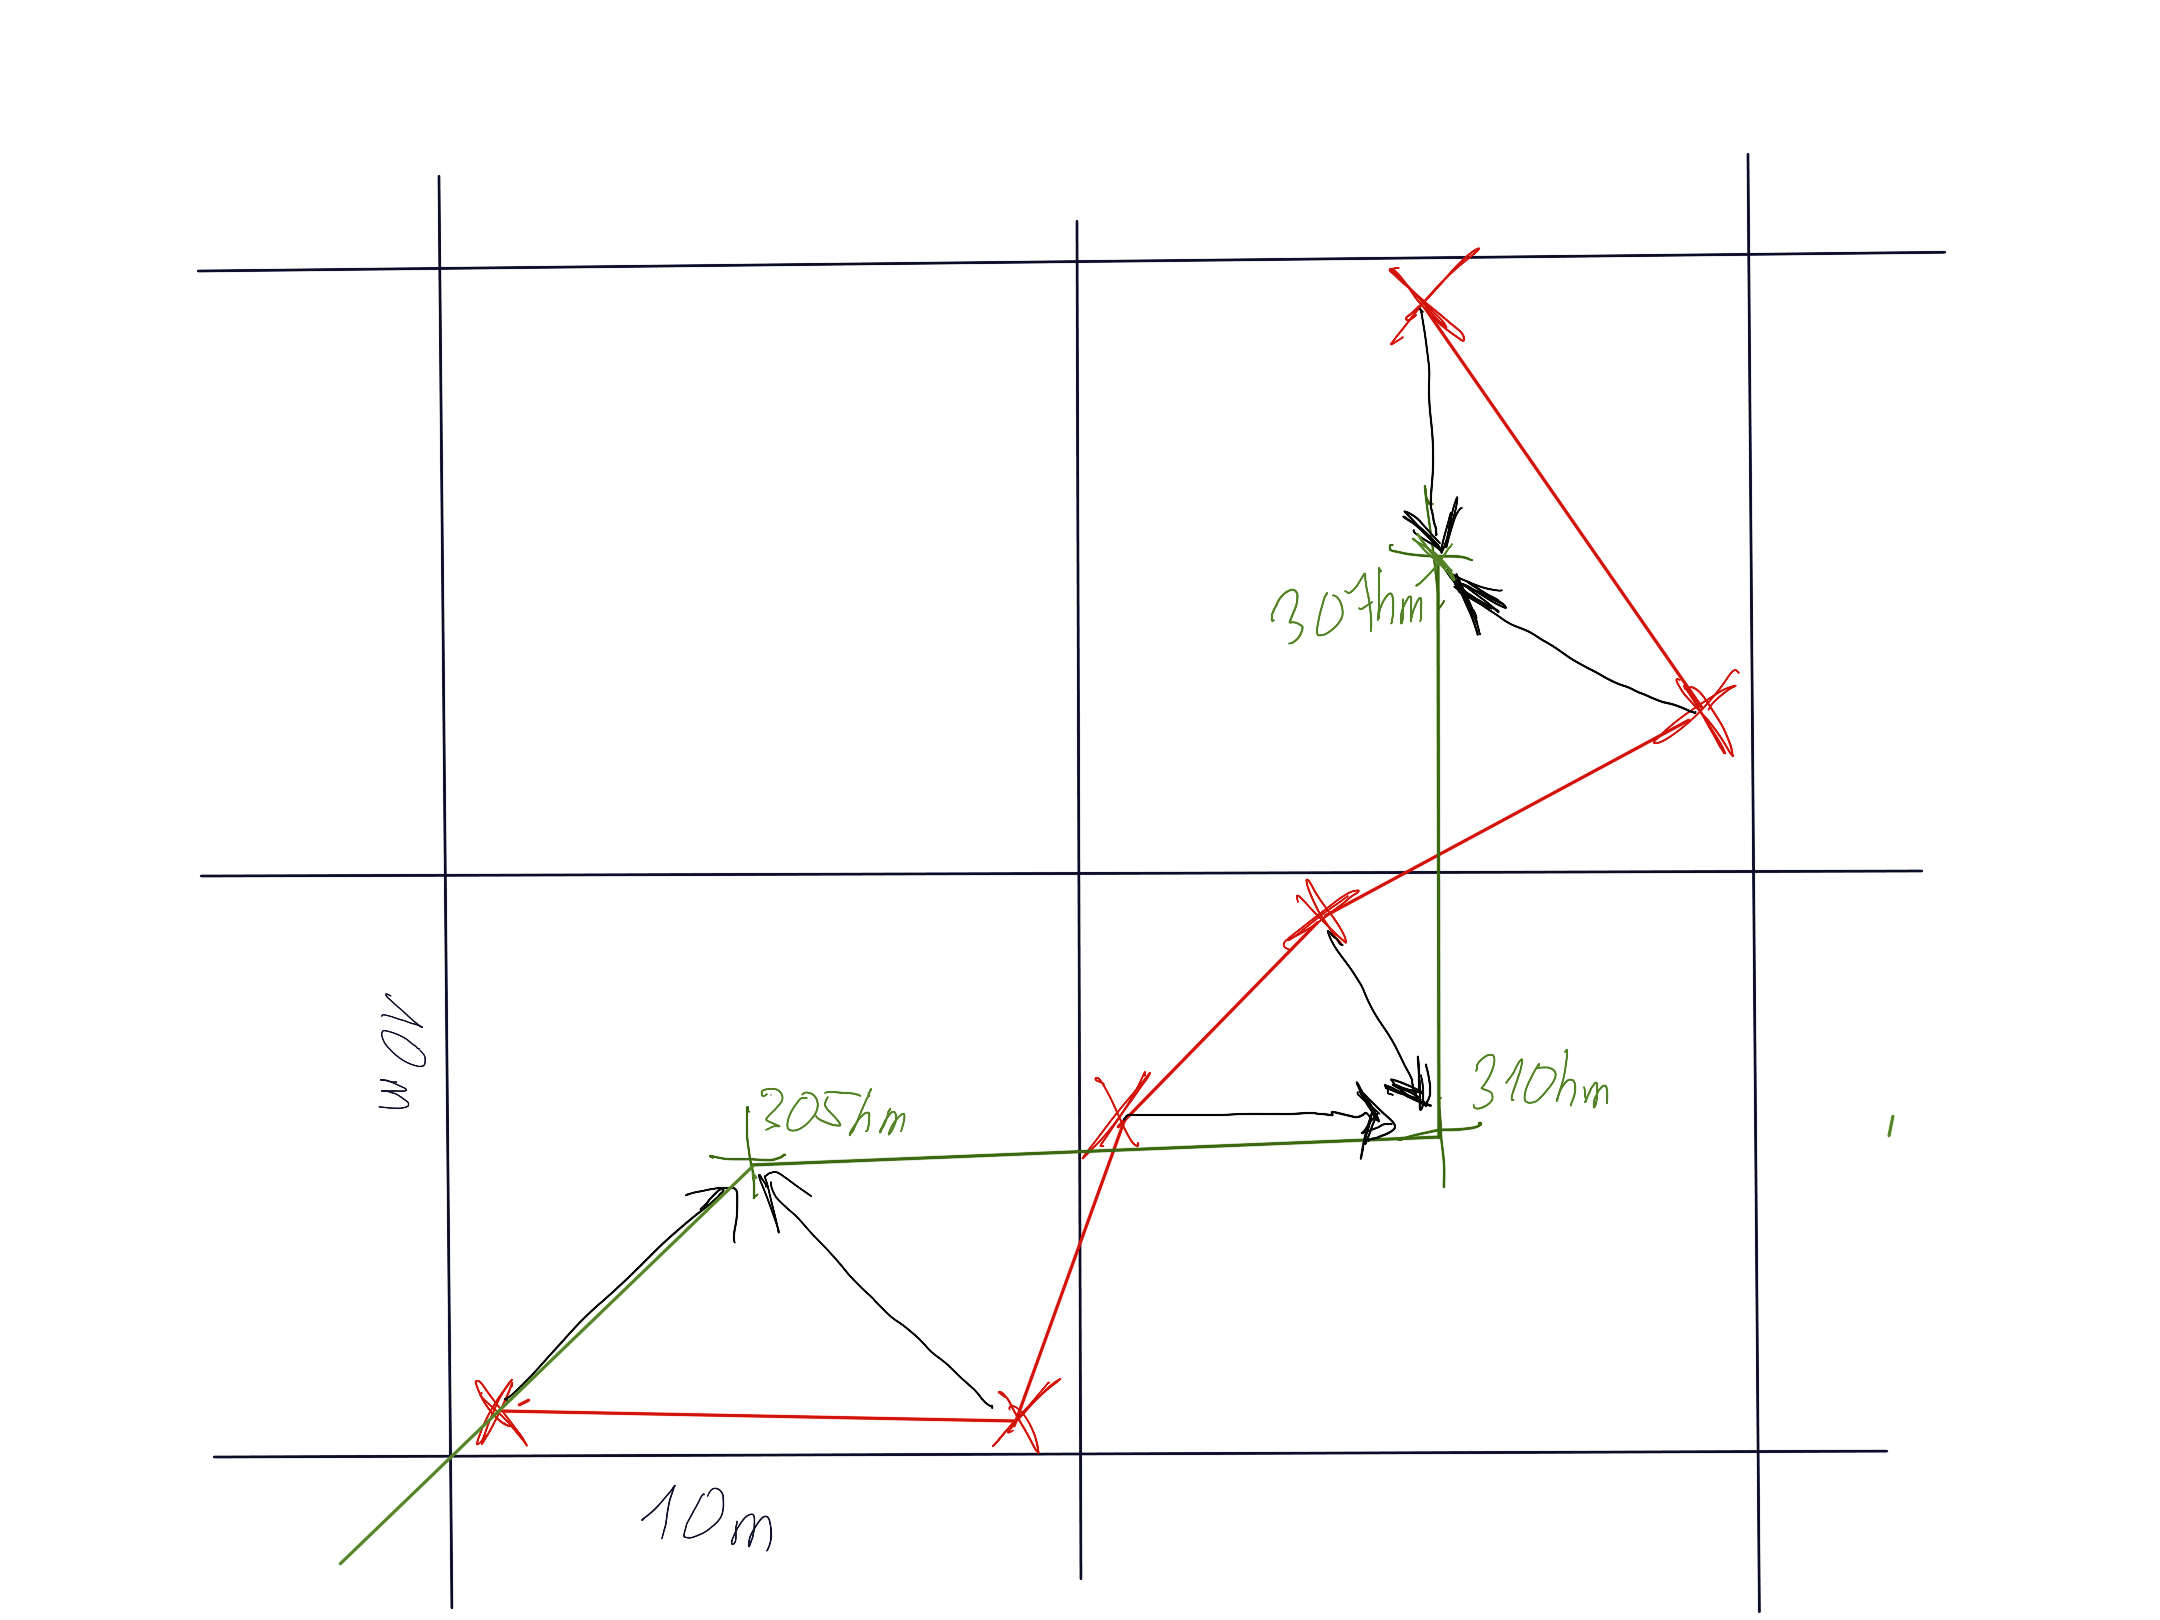 307hm
10m
305hm
310hm
10m